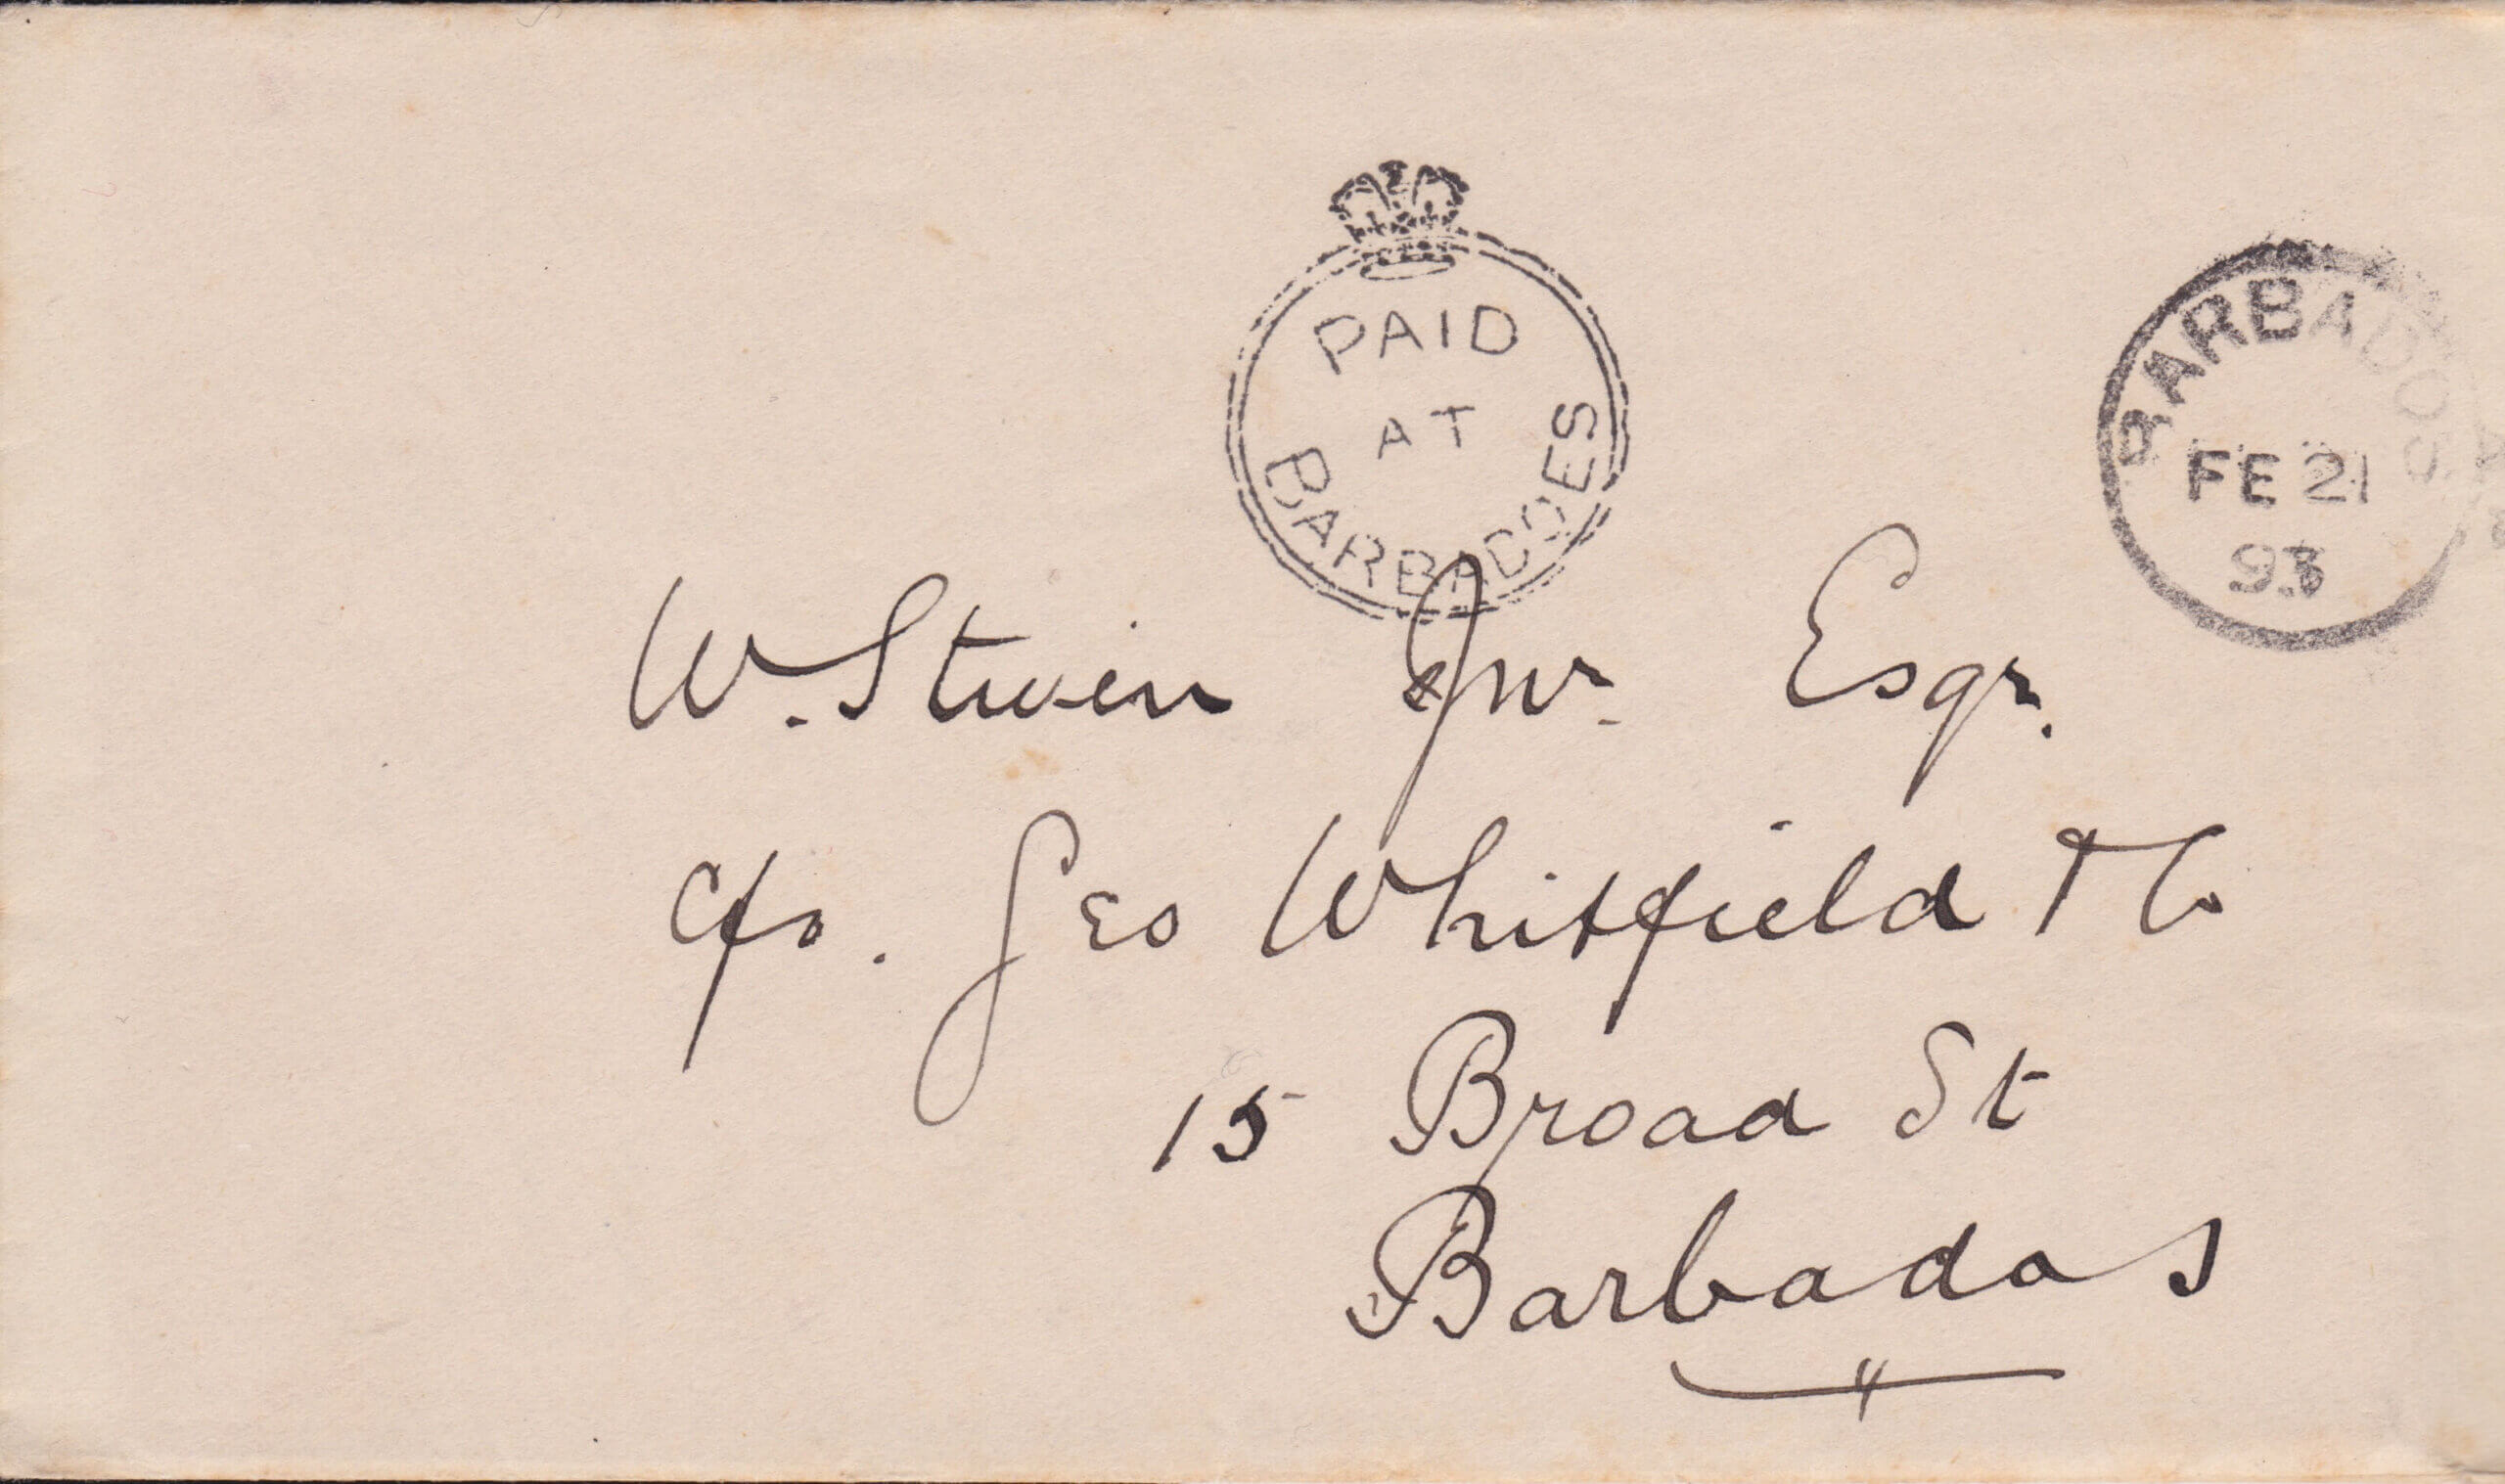 PAID
AT
BARBADOES
BARBADOS
FE 21
93
W. Stwein Jnr. Esqr.
C/o. Geo Whitfield & Co
15 Broad St
Barbados